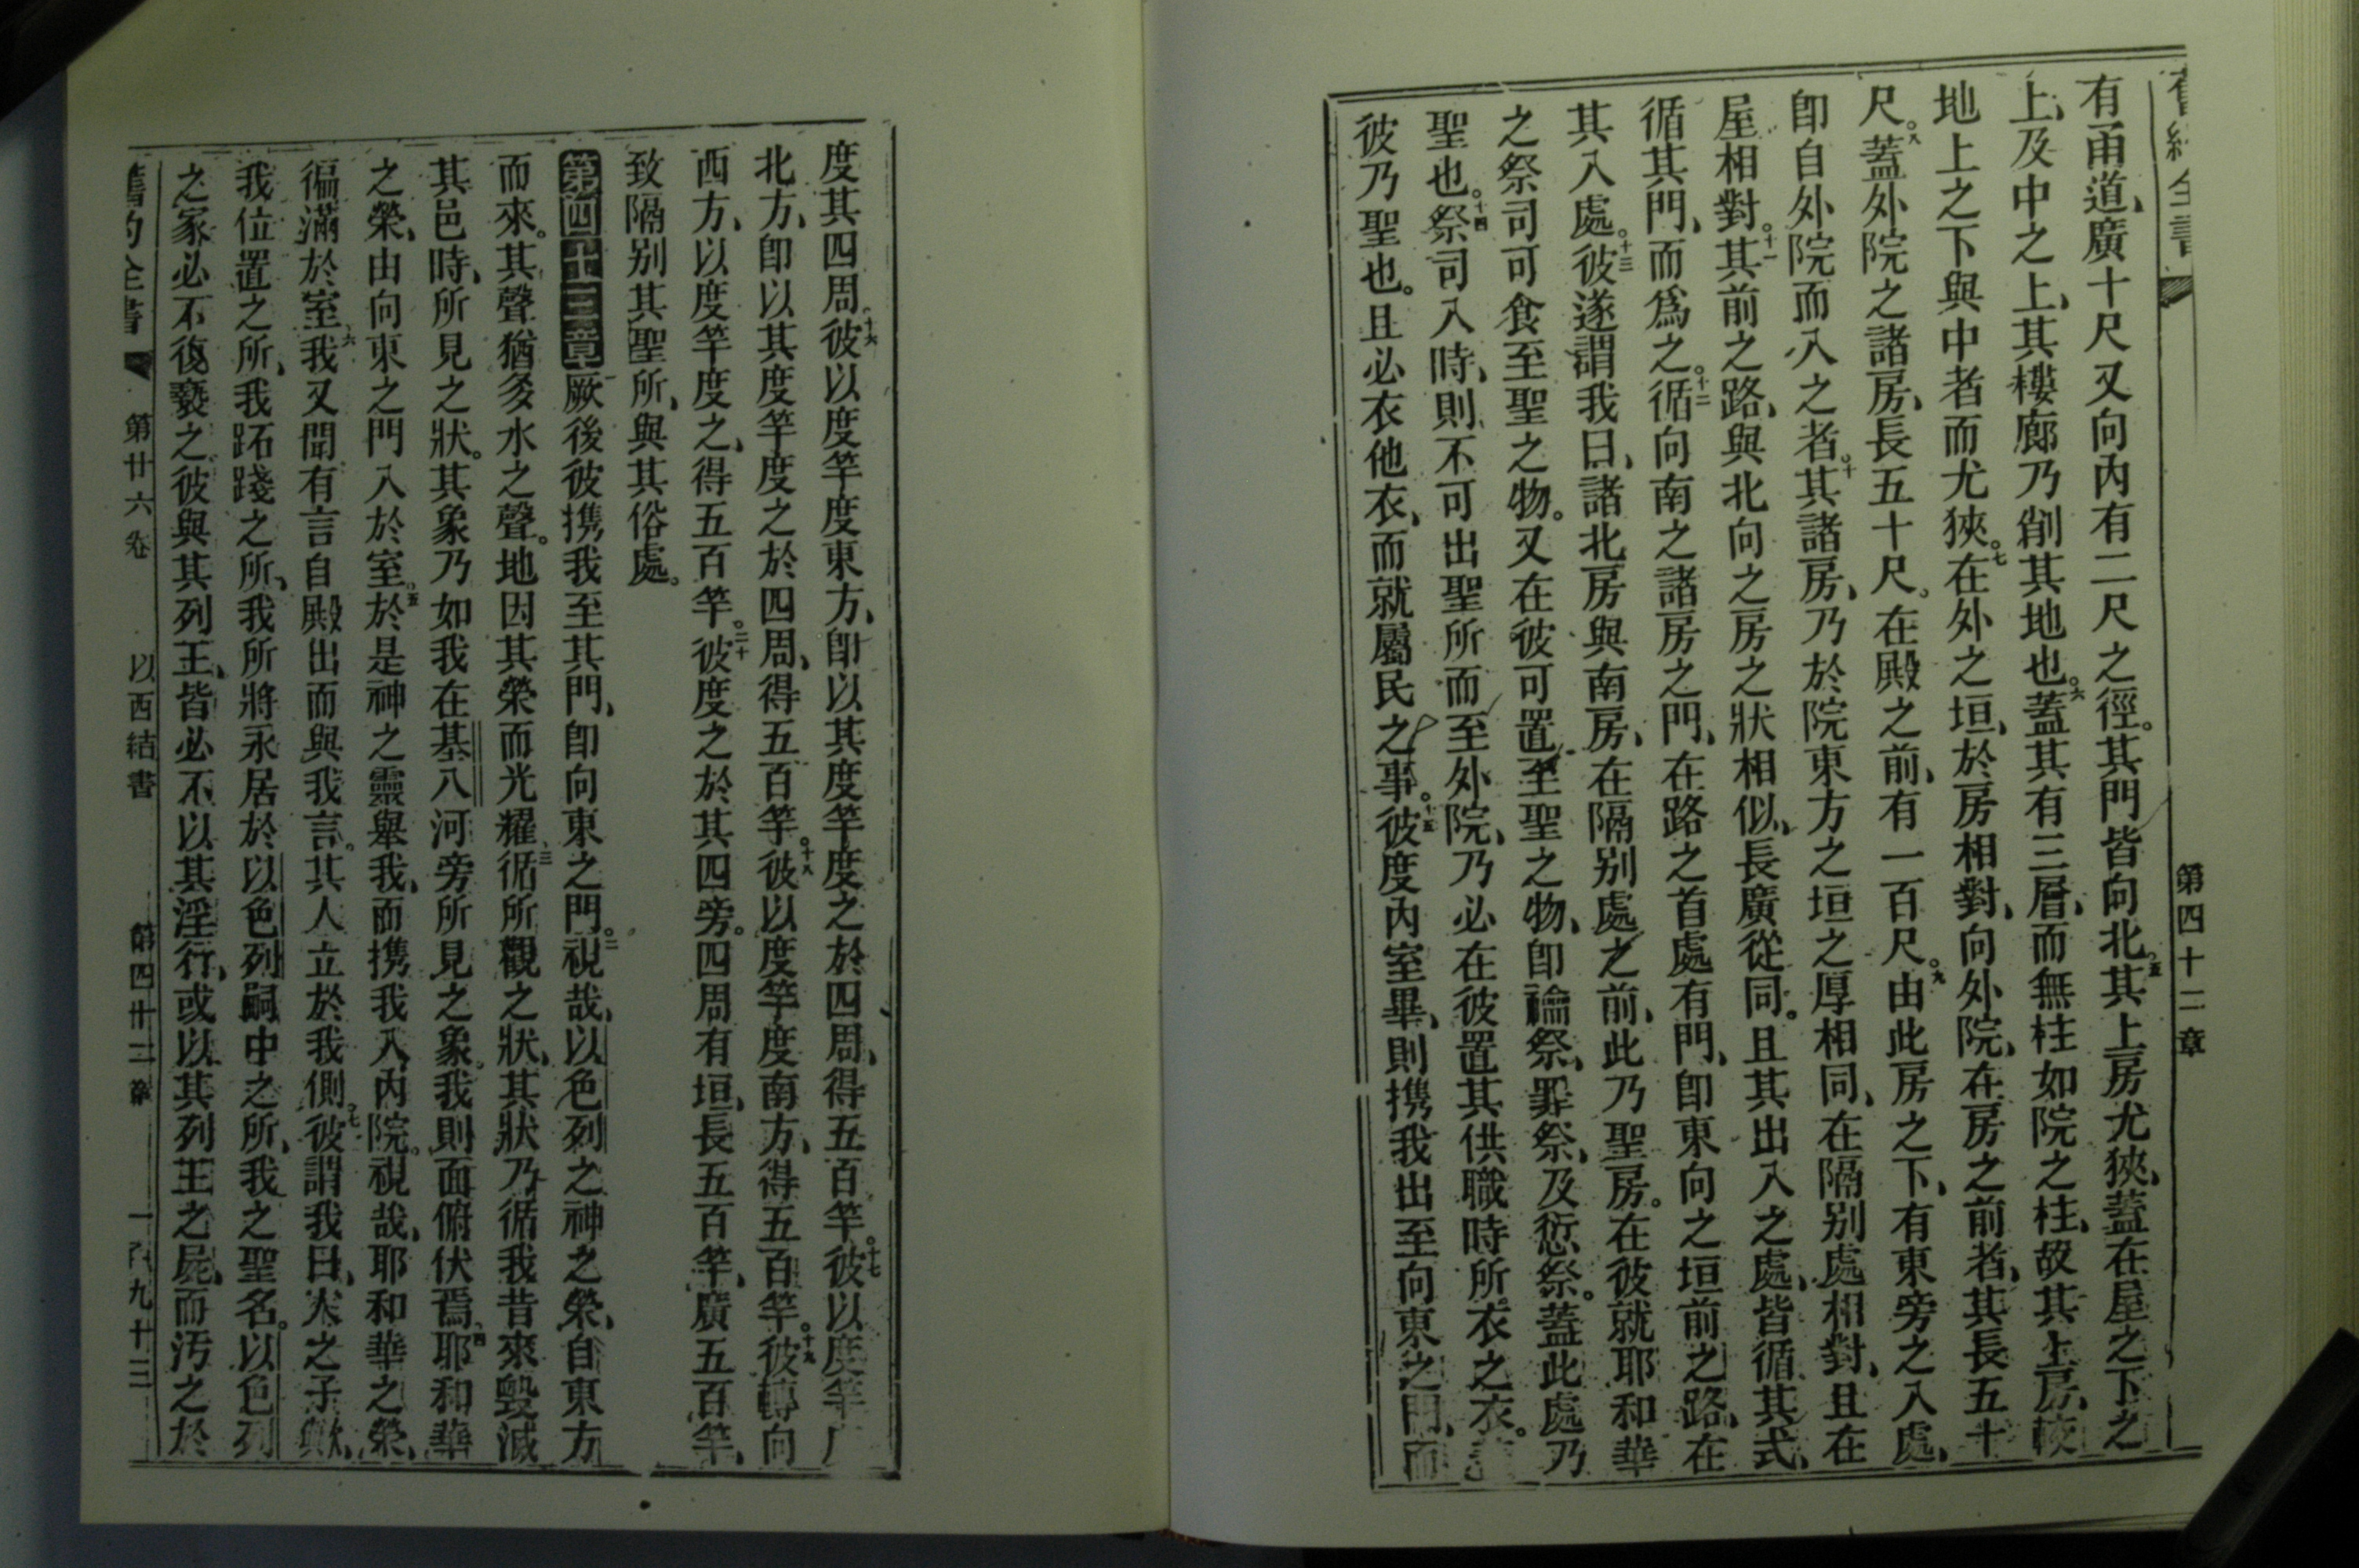 第四十二章
有甬道、廣十尺又向內有二尺之徑。其門皆向北。五其上房尤狹、蓋在屋之下之
上、及中之上、其樓廊乃削其地也。六蓋其有三層、而無柱如院之柱、故其上房、較
地上之下與中者而尤狹。七在外之垣、於房相對、向外院、在房之前者、其長五十
尺。八蓋外院之諸房、長五十尺。在殿之前、有一百尺。九由此房之下、有東旁之入處、
卽自外院而入之者。十其諸房、乃於院東方之垣之厚相同、在隔別處相對、且在
屋相對。十一其前之路、與北向之房之狀相似、長廣從同。且其出入之處、皆循其式、
循其門、而爲之。十二循向南之諸房之門、在路之首處有門、卽東向之垣前之路、在
其入處。十三彼遂謂我曰、諸北房與南房、在隔別處之前、此乃聖房。在彼就耶和華
之祭司可食至聖之物。又在彼可置至聖之物、卽禴祭、罪祭、及愆祭。蓋此處乃
聖也。十四祭司入時、則不可出聖所而至外院、乃必在彼置其供職時所衣之衣。
彼乃聖也。且必衣他衣、而就屬民之事。十五彼度內室畢、則携我出至向東之門、而
度其四周。十六彼以度竿度東方、卽以其度竿度之於四周、得五百竿。十七彼以度竿
北方、卽以其度竿度之於四周、得五百竿。十八彼以度竿度南方、得五百竿。十九彼轉向
西方、以度竿度之、得五百竿。二十彼度之於其四旁。四周有垣、長五百竿、廣五百竿、
致隔別其聖所、與其俗處。
第四十三章厥後彼携我至其門、卽向東之門。二視哉、以色列之神之榮、自東方
而來。其聲猶多水之聲。地因其榮而光耀。三循所觀之狀、其狀乃循我昔來毀滅
其邑時、所見之狀。其象乃如我在基八河旁所見之象。我則面俯伏焉。四耶和華
之榮、由向東之門入於室。五於是神之靈舉我、而携我入內院。視哉、耶和華之榮、
徧滿於室。六我又聞有言自殿出而與我言。其人立於我側。七彼謂我曰、人之子歟、
我位置之所、我跖踐之所、我所將永居於以色列嗣中之所、我之聖名。以色列
之家必不復褻之、彼與其列王、皆必不以其淫行、或以其列王之屍、而汚之於
第廿六卷 以西結書 第四十二章 一百九十三